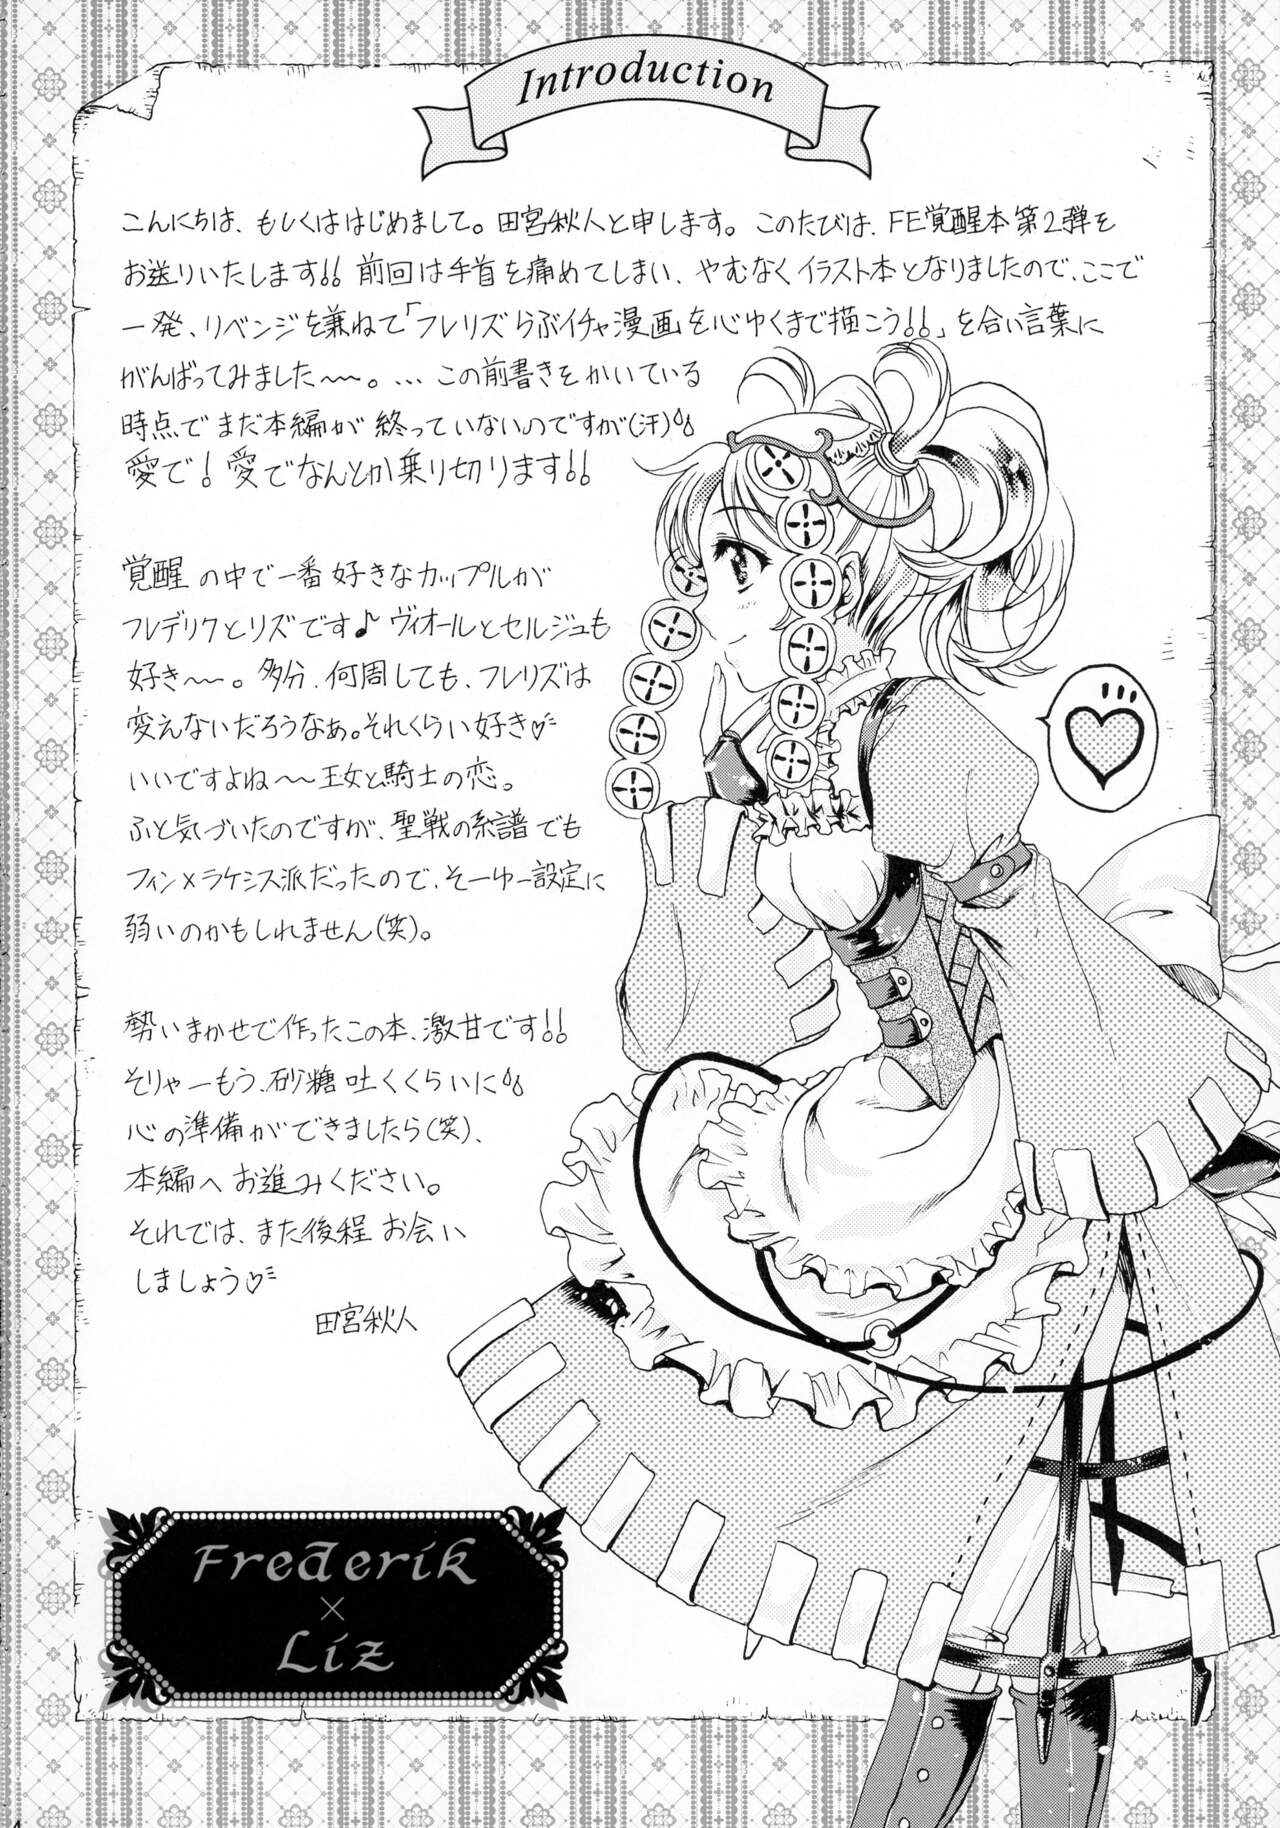 Introduction
こんにちは、もしくははじめまして。田宮秋人と申します。このたびは、FE覚醒本第2弾を
お送りいたします!! 前回は手首を痛めてしまい、やむなくイラスト本となりましたので、ここで
一発、リベンジを兼ねて「フレリズらぶイチャ漫画を心ゆくまで描こう!!」を合い言葉に
がんばってみました〜〜。...この前書きをかいている
時点でまだ本編が終っていないのですが(汗)
愛で!愛でなんとか乗り切ります!!
覚醒の中で一番好きなカップルが
フレデリクとリズです♪ヴィオールとセルジュも
好き〜〜。多分、何周しても、フレリズは
変えないだろうなぁ。それくらい好き♡
いいですよね〜〜王女と騎士の恋。
ふと気づいたのですが、聖戦の系譜でも
フィン×ラケシス派だったので、そーゆー設定に
弱いのかもしれません(笑)。
勢いまかせで作ったこの本、激甘です!!
そりゃーもう、砂糖吐くくらいに
心の準備ができましたら(笑)、
本編へお進みください。
それでは、また後程お会い
しましょう♡
田宮秋人
Frederik
×
Liz
4